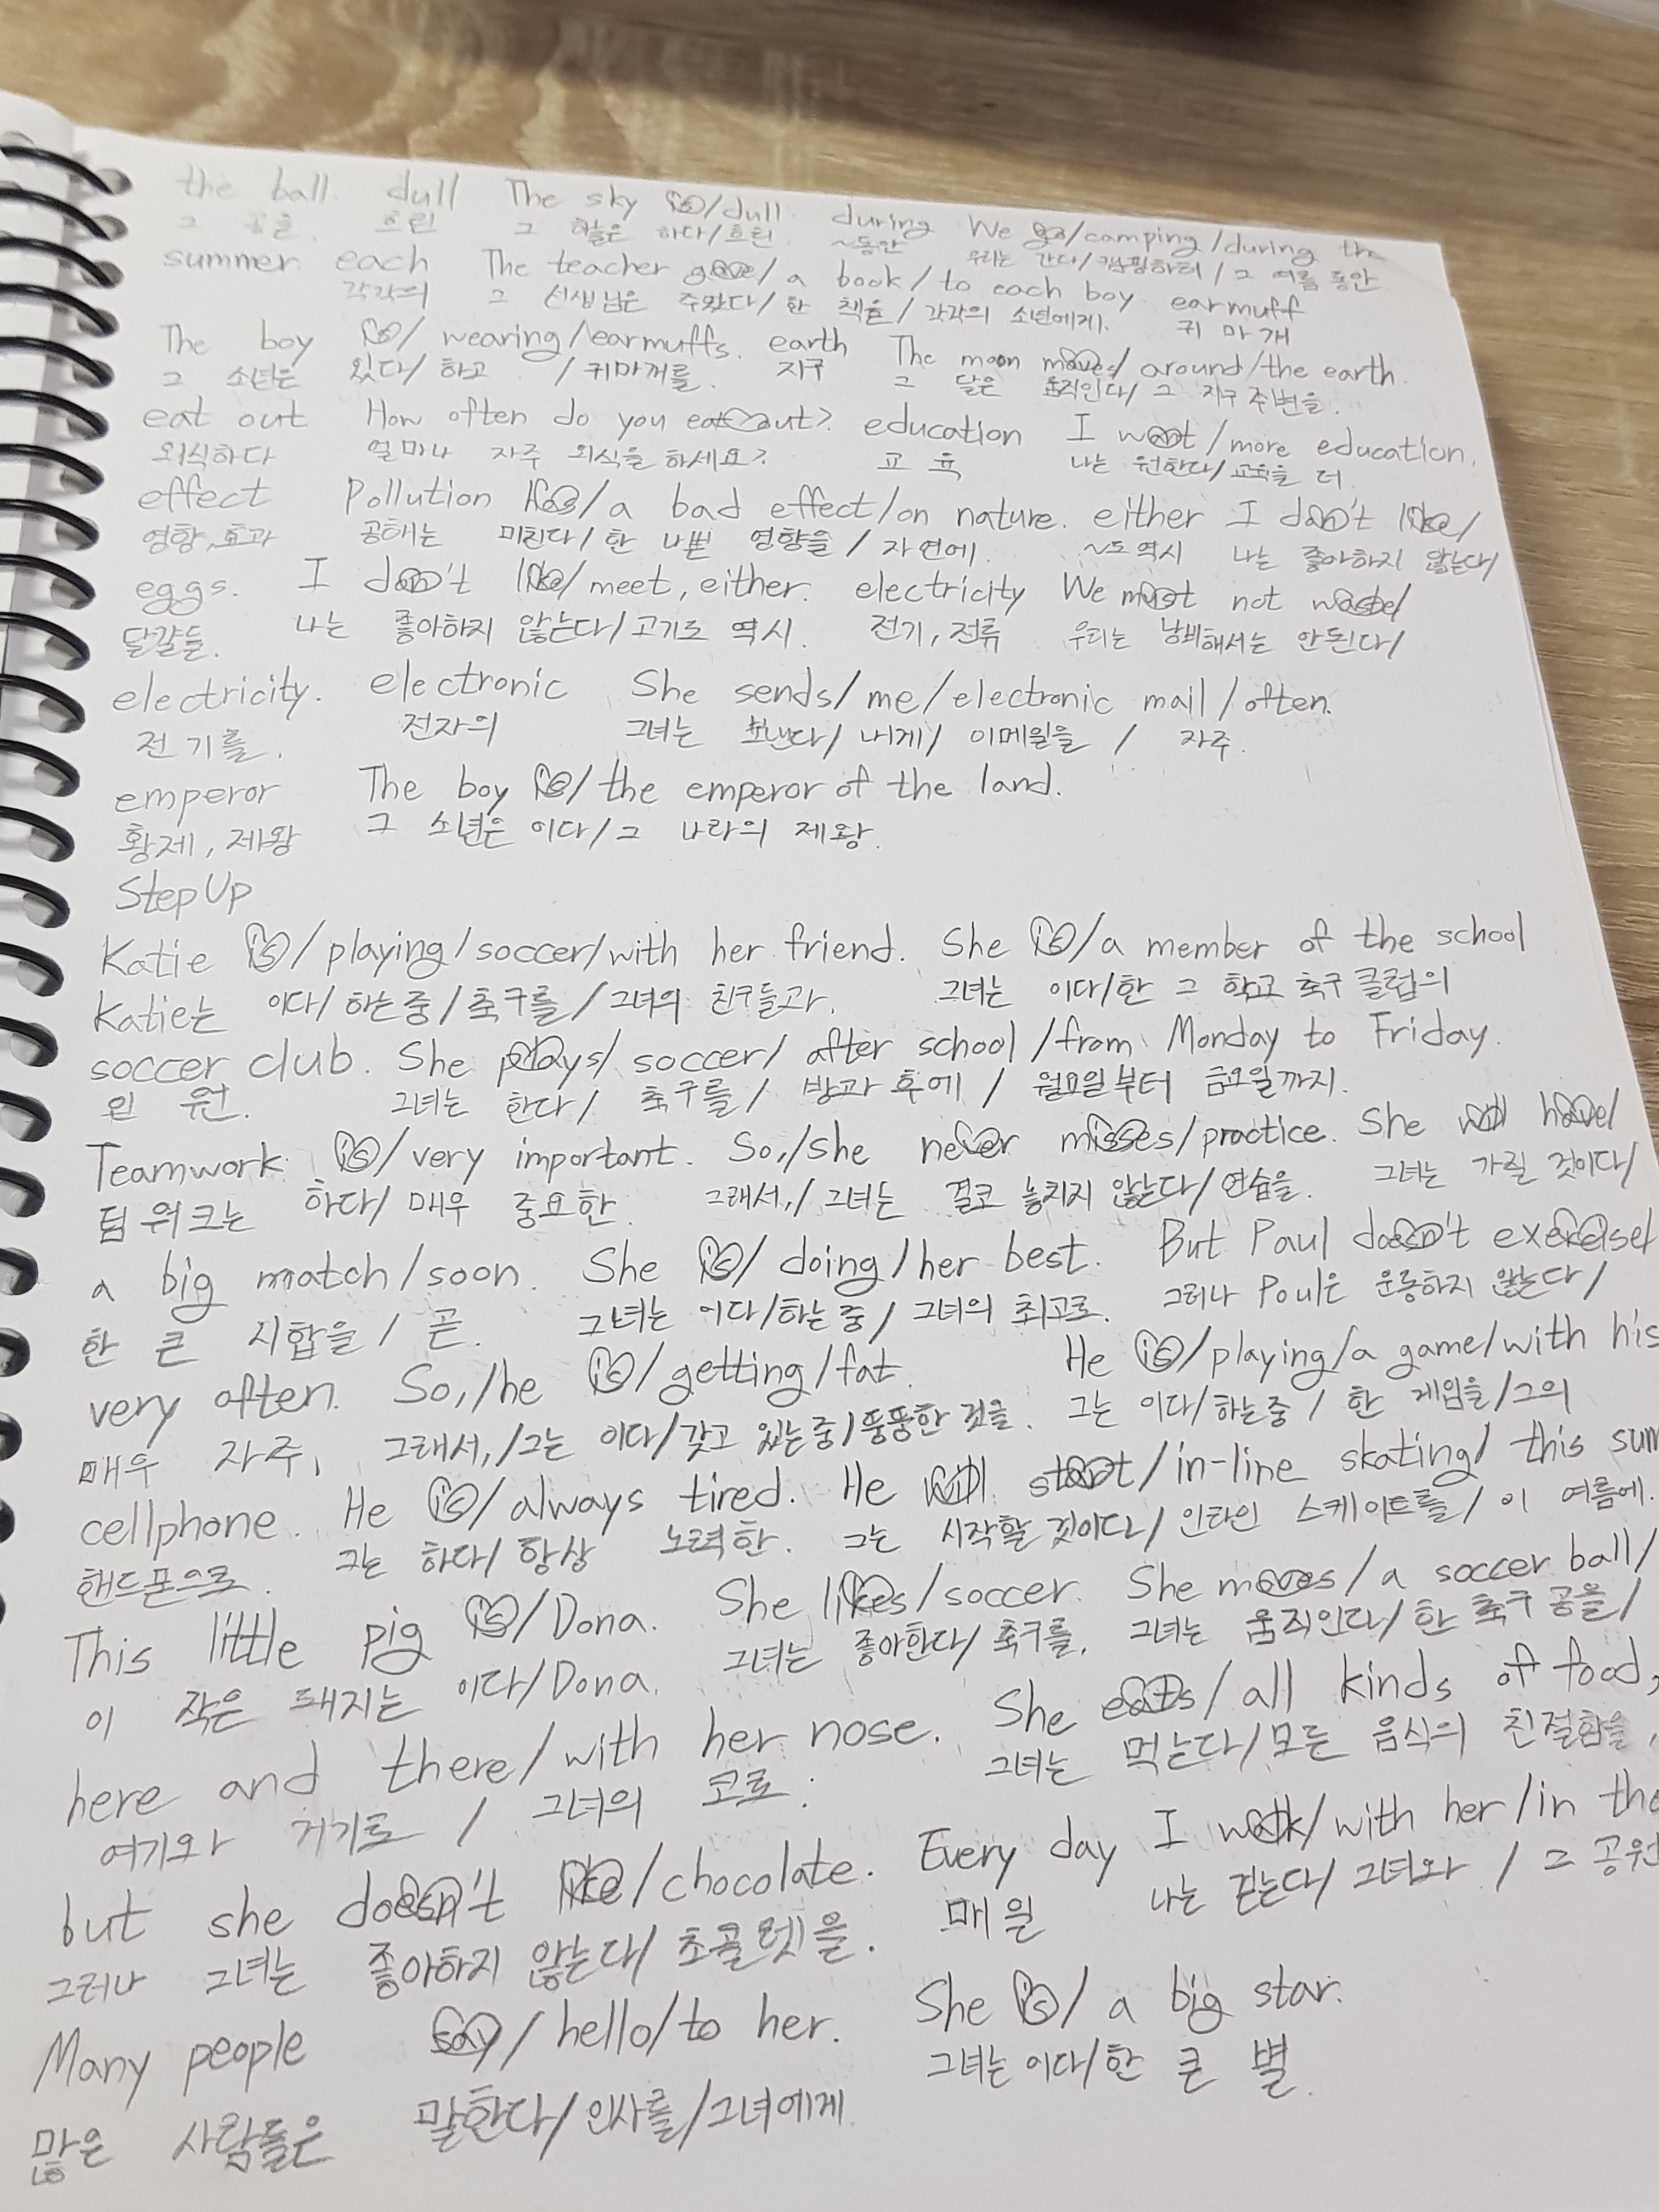 the ball. dull The sky is/dull. during We go/camping/during the
그 공을. 흐린 그 하늘은 하다/흐린. ~동안 우리는 간다/캠핑하러/그 여름 동안
summer. each The teacher gave/a book/to each boy. earmuff
각각의 그 선생님은 주었다/한 책을/각각의 소년에게. 귀마개
The boy is/wearing/earmuffs. earth The moon moves/around/the earth.
그 소년은 있다/하고 /귀마개를. 지구 그 달은 움직인다/그 지구 주변을.
eat out How often do you eat out? education I want/more education.
외식하다 얼마나 자주 외식을 하세요? 교육 나는 원한다/교육을 더
effect Pollution has/a bad effect/on nature. either I don't like/
영향, 효과 공해는 미친다/한 나쁜 영향을/자연에. ~도 역시 나는 좋아하지 않는다/
eggs. I don't like/meet, either. electricity We must not waste/
달걀들. 나는 좋아하지 않는다/고기도 역시. 전기, 전류 우리는 낭비해서는 안된다/
electricity. electronic She sends/me/electronic mail/often.
전기를. 전자의 그녀는 보낸다/내게/이메일을/자주.
emperor The boy is/the emperor of the land.
황제, 제왕 그 소년은 이다/그 나라의 제왕.
Step Up
Katie is/playing/soccer/with her friend. She is/a member of the school
Katie는 이다/하는중/축구를/그녀의 친구들과. 그녀는 이다/한 그 학교 축구 클럽의
soccer club. She plays/soccer/after school/from Monday to Friday.
원. 그녀는 한다/축구를/방과 후에/월요일부터 금요일까지.
Teamwork is/very important. So,/she never misses/practice. She will have/
팀워크는 하다/매우 중요한. 그래서,/그녀는 결코 놓치지 않는다/연습을. 그녀는 가질 것이다/
a big match/soon. She is/doing/her best. But Paul doesn't exercise/
한 큰 시합을/곧. 그녀는 이다/하는중/그녀의 최고로. 그러나 Poul은 운동하지 않는다/
very often. So,/he is/getting/fat. He is/playing/a game/with his
매우 자주, 그래서,/그는 이다/갖고 있는중/뚱뚱한 것을. 그는 이다/하는중/한 게임을/그의
cellphone. He is/always tired. He will start/in-line skating/this sum
핸드폰으로. 그는 하다/항상 노력한. 그는 시작할 것이다/인라인 스케이트를/이 여름에.
This little pig is/Dona. She likes/soccer. She moves/a soccer ball/
이 작은 돼지는 이다/Dona. 그녀는 좋아한다/축구를. 그녀는 움직인다/한 축구 공을/
here and there/with her nose. She eats/all kinds of food,
여기와 거기로/그녀의 코로. 그녀는 먹는다/모든 음식의 친절함을,
but she doesn't like/chocolate. Every day I walk/with her/in the
그러나 그녀는 좋아하지 않는다/초콜렛을. 매일 나는 걷는다/그녀와/그 공원
Many people say/hello/to her. She is/a big star.
많은 사람들은 말한다/인사를/그녀에게. 그녀는 이다/한 큰 별.